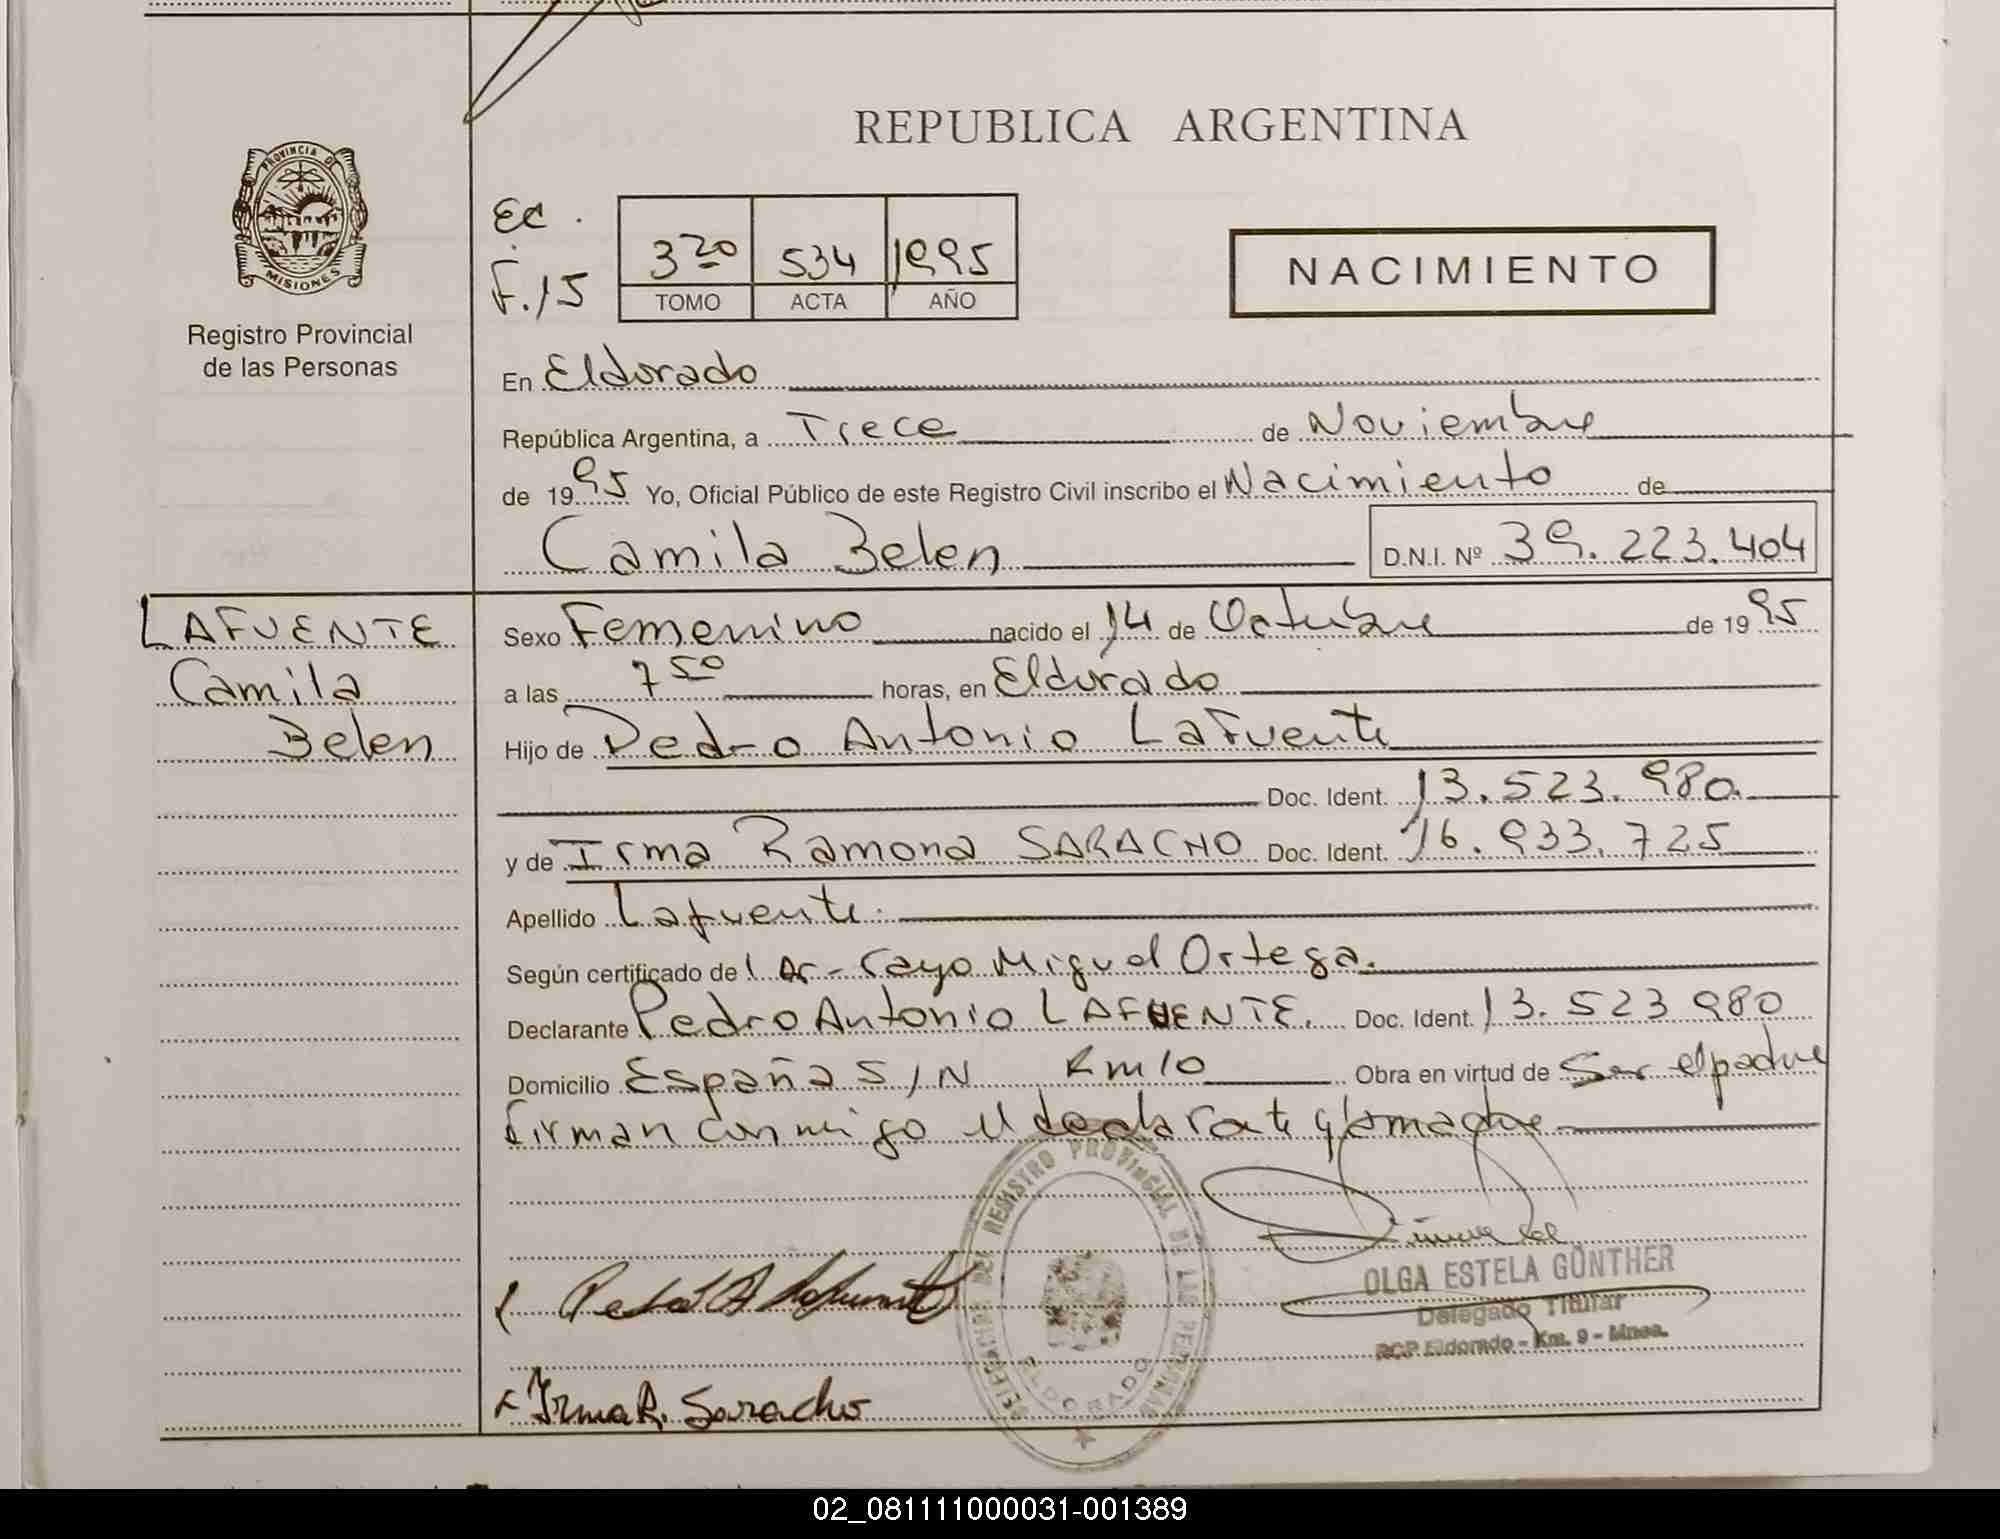 REPUBLICA ARGENTINA
PROVINCIA DE
MISIONES
Registro Provincial
de las Personas
EC.
F.15
3 20 534 1995
TOMO ACTA AÑO
NACIMIENTO
En Eldorado
República Argentina, a Trece de Noviembre
de 1995 Yo, Oficial Público de este Registro Civil inscribo el Nacimiento de
Camila Belen D.N.I. Nº 39.223.404
LAFUENTE
Camila
Belen
Sexo Femenino nacido el 14 de Octubre de 1995
a las 7 50 horas, en Eldorado
Hijo de Pedro Antonio Lafuente
Doc. Ident. 13.523.980
y de Irma Ramona SARACHO Doc. Ident. 16.933.725
Apellido Lafuente.
Según certificado del Dr. Cayo Miguel Ortega.
Declarante Pedro Antonio LAFUENTE. Doc. Ident. 13.523 980
Domicilio España S/N Km10 Obra en virtud de Ser el padre
Firman conmigo el declarate y la madre
DELEGACION DEL REGISTRO PROVINCIAL DE LAS PERSONAS
ELDORADO
OLGA ESTELA GÜNTHER
Delegado Titular
RCP Eldorado - Km. 9 - Mnes.
Pedro A Lafuente
Irma R. Saracho
02_081111000031-001389